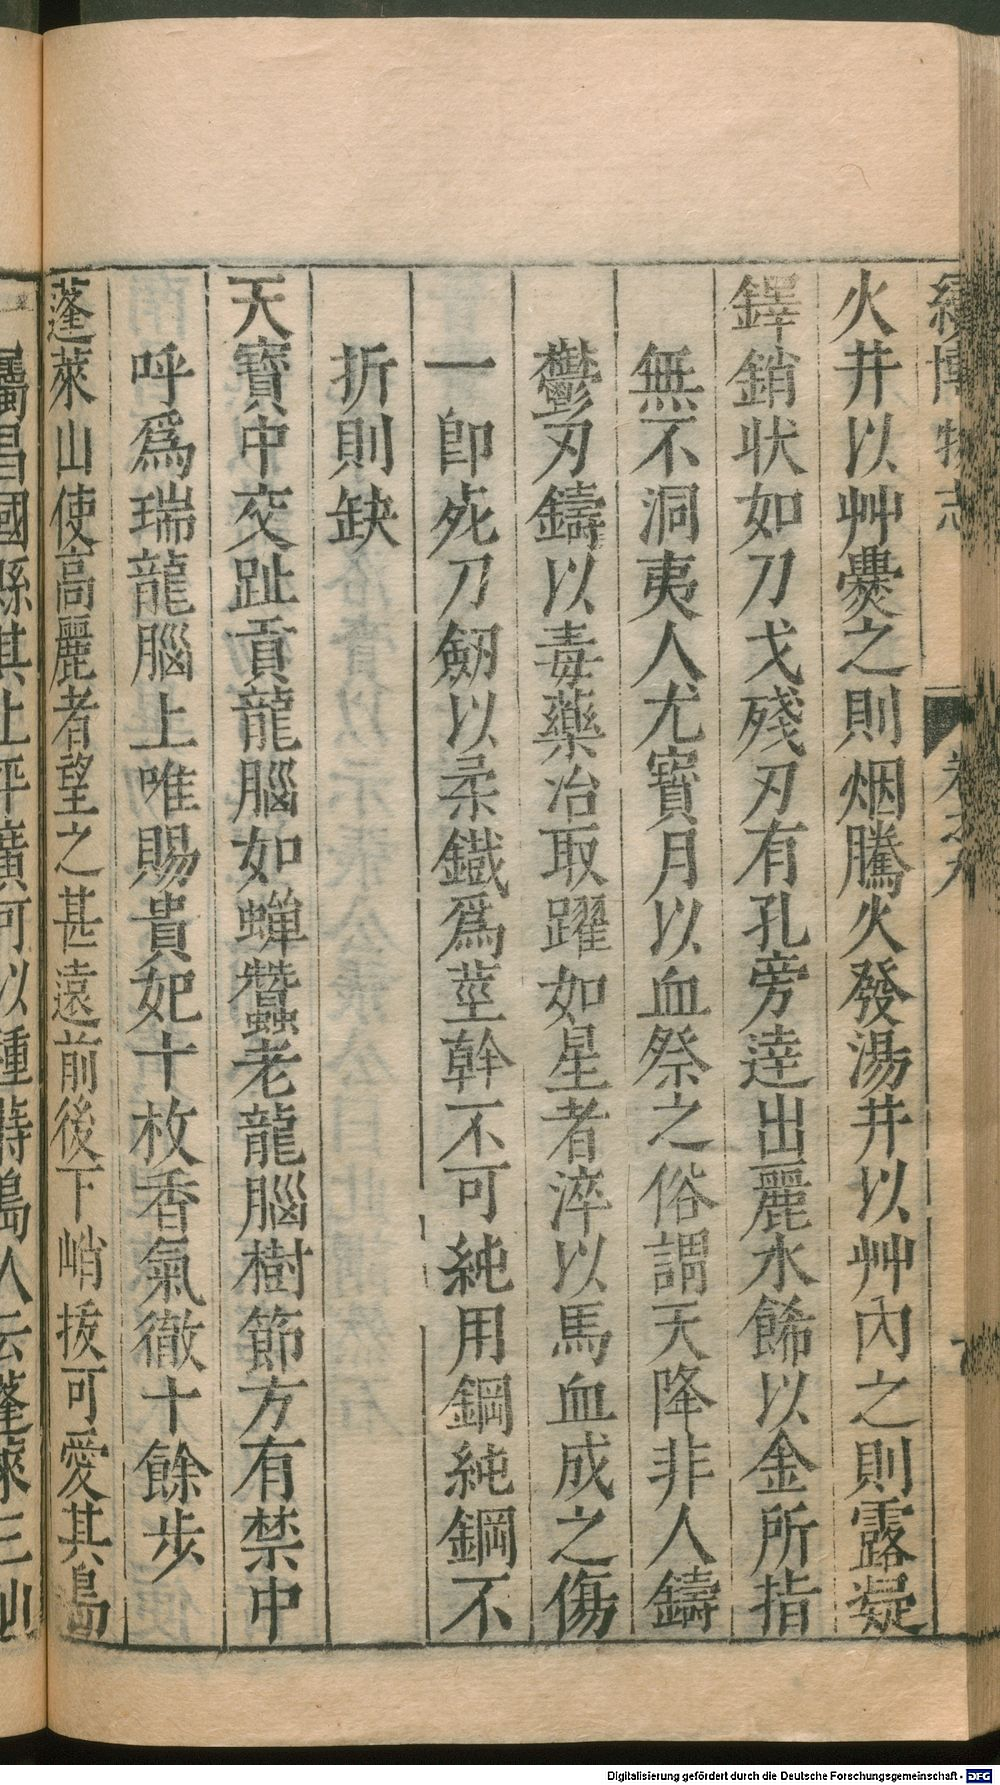 續博物志
卷之九
火井以艸爨之則烟騰火發湯井以艸內之則露凝
鐸銷狀如刀戈殘刃有孔旁達出麗水餙以金所指
無不洞夷人尤寶月以血祭之俗謂天降非人鑄
鬱刃鑄以毒藥冶取躍如星者淬以馬血成之傷
一卽死刀劒以柔鐵爲莖幹不可純用鋼純鋼不
折則缺
天寶中交趾貢龍腦如蟬蠶老龍腦樹節方有禁中
呼爲瑞龍腦上唯賜貴妃十枚香氣徹十餘步
蓬萊山使高麗者望之甚遠前後下峭拔可愛其島
昌國縣其上平廣可以種蒔島人云蓬萊三山
Digitalisierung gefördert durch die Deutsche Forschungsgemeinschaft - DFG